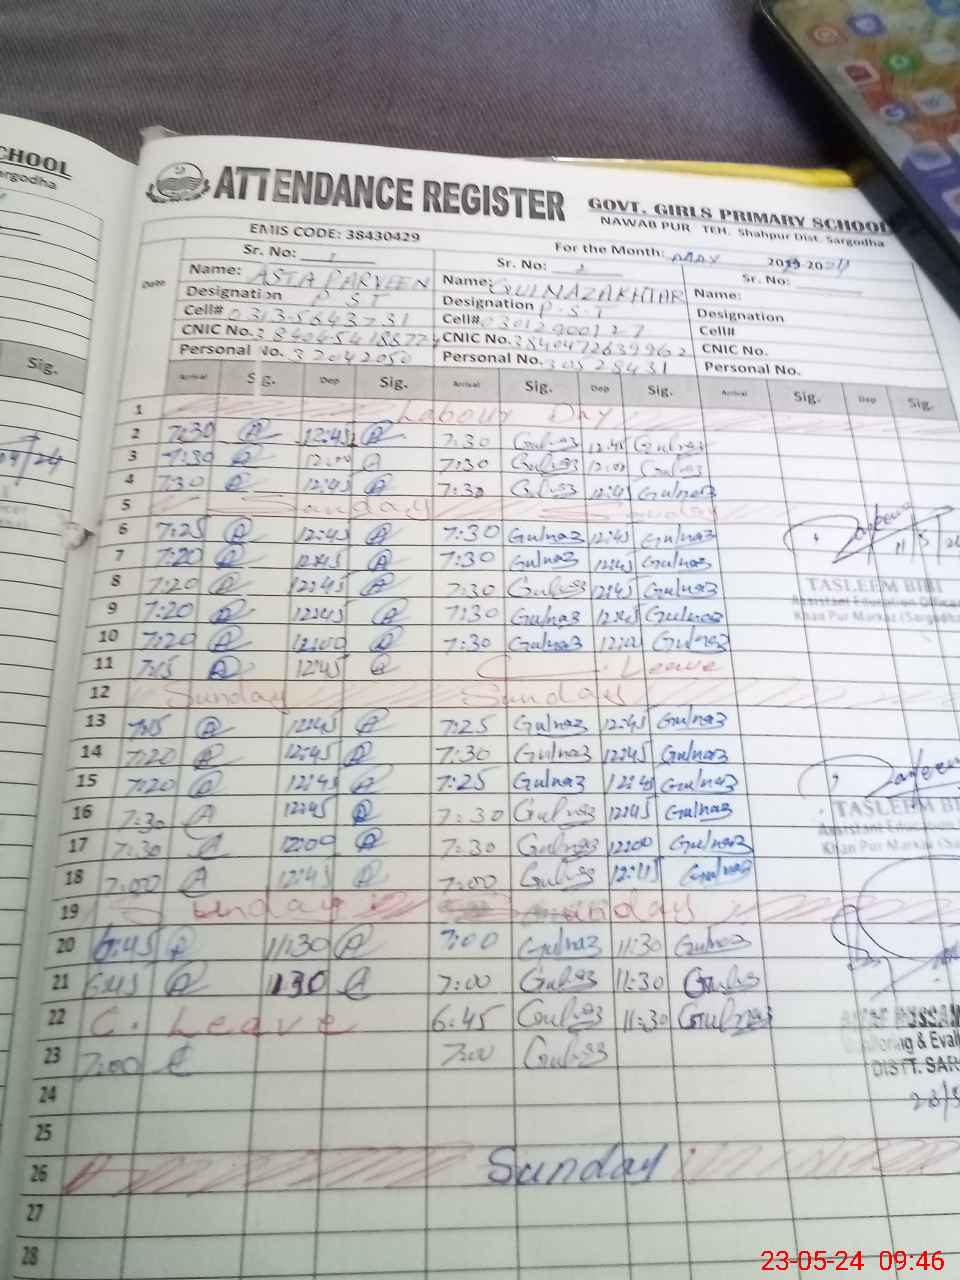 CHOOL
argodha
Sig.
ATTENDANCE REGISTER
GOVT. GIRLS PRIMARY SCHOOL
NAWAB PUR TEH. Shahpur Dist. Sargodha
EMIS CODE: 38430429
For the Month: MAY 20
Date Sr. No: 1 Sr. No: 2 Sr. No:
Name: ASIA PARVEEN Name: GULNAZ AKHTAR Name:
Designation P S T Designation P.S.T Designation
Cell# 03135643731 Cell# Cell#
CNIC No. CNIC No. 3840472639962 CNIC No.
Personal No. 32042050 Personal No. 30528431 Personal No.
Arrival Sig. Dep Sig. Arrival Sig. Dep Sig. Arrival Sig. Dep Sig.
1 Labour Day
2 7:30 12:45 7:30 Gulnaz 12:45 Gulnaz
3 7:30 12:00 7:30 Gulnaz 12:00 Gulnaz
4 7:30 12:45 7:30 Gulnaz 12:45 Gulnaz
5 Sunday Sunday
6 7:25 12:45 7:30 Gulnaz 12:45 Gulnaz
7 7:20 12:45 7:30 Gulnaz 12:45 Gulnaz
8 7:20 12:45 7:30 Gulnaz 12:45 Gulnaz
9 7:20 12:45 7:30 Gulnaz 12:45 Gulnaz
10 7:20 12:00 7:30 Gulnaz 12:00 Gulnaz
11 7:15 12:45 C. Leave
12 Sunday Sunday
13 7:15 12:45 7:25 Gulnaz 12:45 Gulnaz
14 7:20 12:45 7:30 Gulnaz 12:45 Gulnaz
15 7:20 12:45 7:25 Gulnaz 12:45 Gulnaz
16 7:30 12:45 7:30 Gulnaz 12:45 Gulnaz
17 7:30 12:00 7:30 Gulnaz 12:00 Gulnaz
18 7:00 12:45 7:00 Gulnaz 12:45 Gulnaz
19 Sunday Sunday
20 6:45 11:30 7:00 Gulnaz 11:30 Gulnaz
21 6:45 11:30 7:00 Gulnaz 11:30 Gulnaz
22 C. Leave 6:45 Gulnaz 11:30 Gulnaz
23 7:00 7:00 Gulnaz
24
25
26 Sunday
27
28
TASLEEM BIBI
Assistant Education Officer
Khan Pur Markaz (Sargodha
TASLEEM BI
Assistant Education
Khan Pur Markaz (Sa
& Eval
DISTT. SAR
23-05-24 09:46